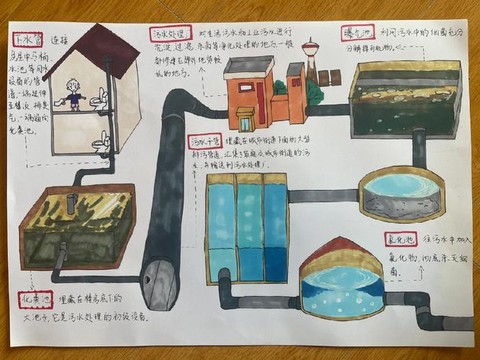 下水管 连接
房屋中马桶,
水池等用水
设备的管
道,一端延伸
至楼顶排臭
气,一端通向
化粪池。
污水处理: 对生活污水和工业污水进行
沉淀过滤,外加等净化处理的地方,一般
都修建在郊外地势较
低的地方。
曝气池 利用污水中的细菌充分
分解掉有机物。
污水干管 埋藏在城市街道下面的大型
排污管道,汇集了家庭及城市街道的污
水,并输送到污水处理厂。
氯化池 往污水中加入
氯化物,彻底杀灭细
菌。
化粪池 埋藏在楼房底下的
大池子,它是污水处理的初级设备。